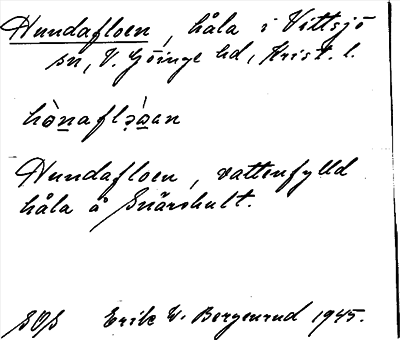 Hundafloen, håla i Vittsjö
sn, V. Göinge hd, Krist. l.
hònaflə̀an
Hundafloen, vattenfylld
håla å Snärshult.
SOS Erik W. Bergenrud 1945.